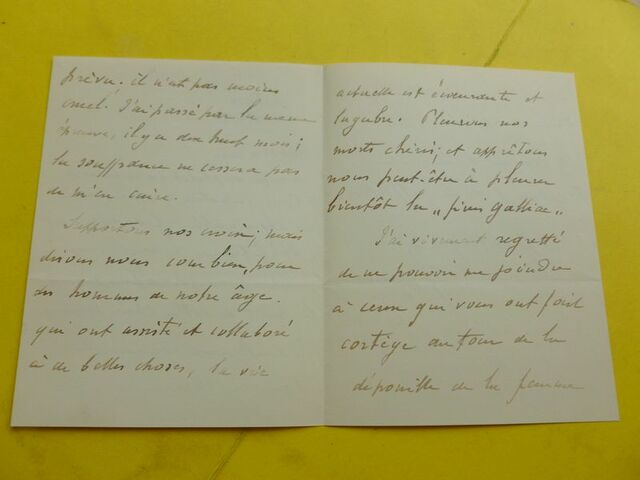 prévu. il n'est pas moins
cruel. J'ai passé par la même
épreuve, il y a dix huit mois ;
la souffrance ne cessera pas
de m'en cuire.
Supportons nos croix ; mais
disons nous combien, pour
des hommes de notre âge
qui ont assisté et collaboré
à de belles choses, la vie
actuelle est écœurante et
lugubre. Pleurons nos
morts chéris ; et apprêtons
nous peut être à pleurer
bientôt la „finis Galliae"
J'ai vivement regretté
de ne pouvoir me joindre
à ceux qui vous ont fait
cortège autour de la
dépouille de la femme